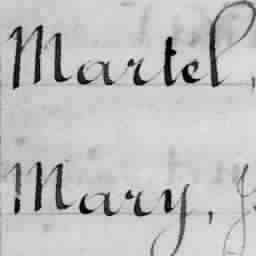 Martel,
Mary, J